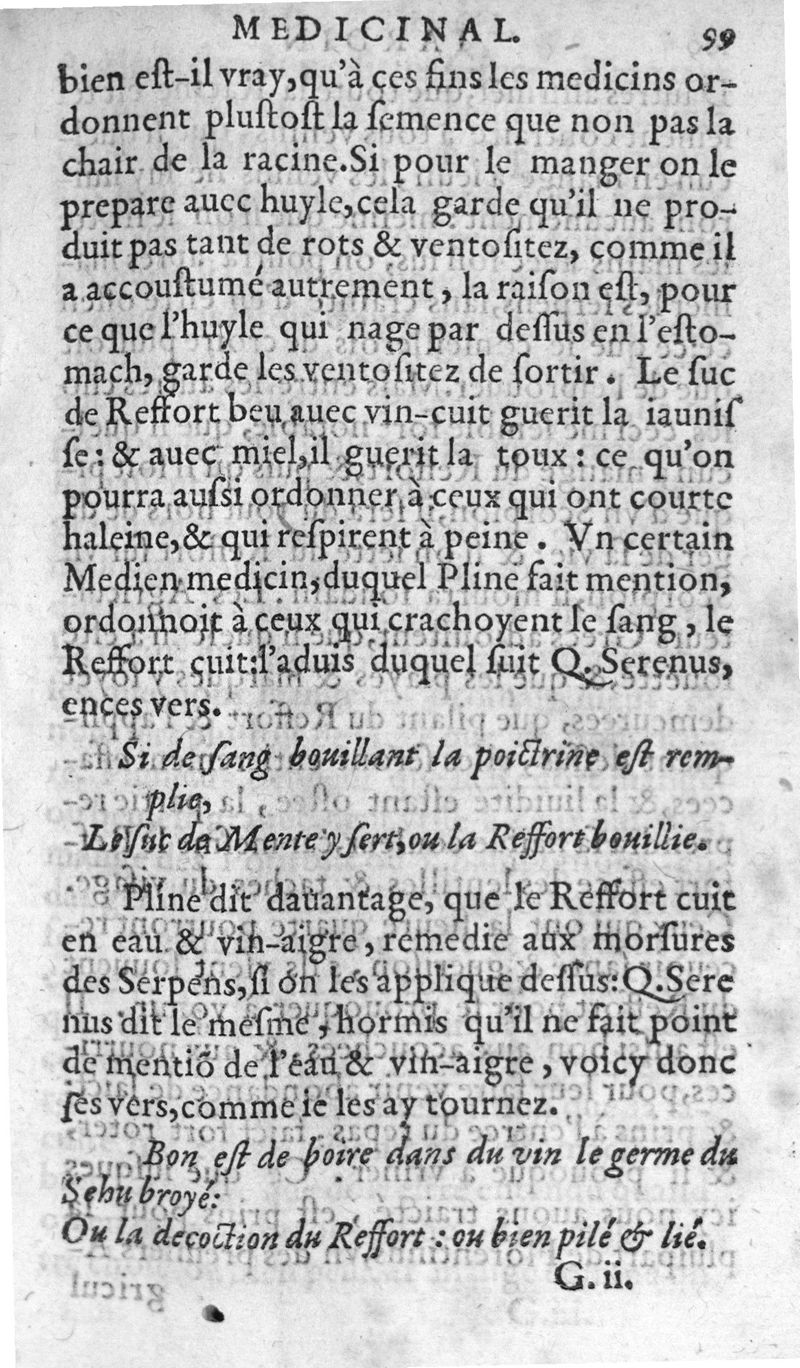 MEDICINAL. 99
bien eſt-il vray, qu'à ces fins les medicins or-
donnent pluſtoſt la ſemence que non pas la
chair de la racine. Si pour le manger on le
prepare auec huyle, cela garde qu'il ne pro-
duit pas tant de rots & ventoſitez, comme il
a accouſtumé autrement, la raiſon eſt, pour
ce que l'huyle qui nage par deſſus en l'eſto-
mach, garde les ventoſitez de ſortir. Le ſuc
de Reffort beu auec vin-cuit guerit la iauniſ
ſe: & auec miel, il guerit la toux: ce qu'on
pourra auſsi ordonner à ceux qui ont courte
haleine, & qui reſpirent à peine. Vn certain
Medien medicin, duquel Pline fait mention,
ordonnoit à ceux qui crachoyent le ſang, le
Reffort cuit: l'aduis duquel ſuit Q. Serenus,
en ces vers.
Si de ſang bouillant la poictrine eſt rem-
plie,
Le ſuc de Mente y ſert, ou la Reffort bouillie.
Pline dit dauantage, que le Reffort cuit
en eau & vin-aigre, remedie aux morſures
des Serpens, ſi on les applique deſſus: Q. Sere
nus dit le meſme, hormis qu'il ne fait point
de mentiõ de l'eau & vin-aigre, voicy donc
ſes vers, comme ie les ay tournez.
Bon eſt de boire dans du vin le germe du
Sehu broyé:
Ou la decoction du Reffort: ou bien pilé & lié.
G. ii.